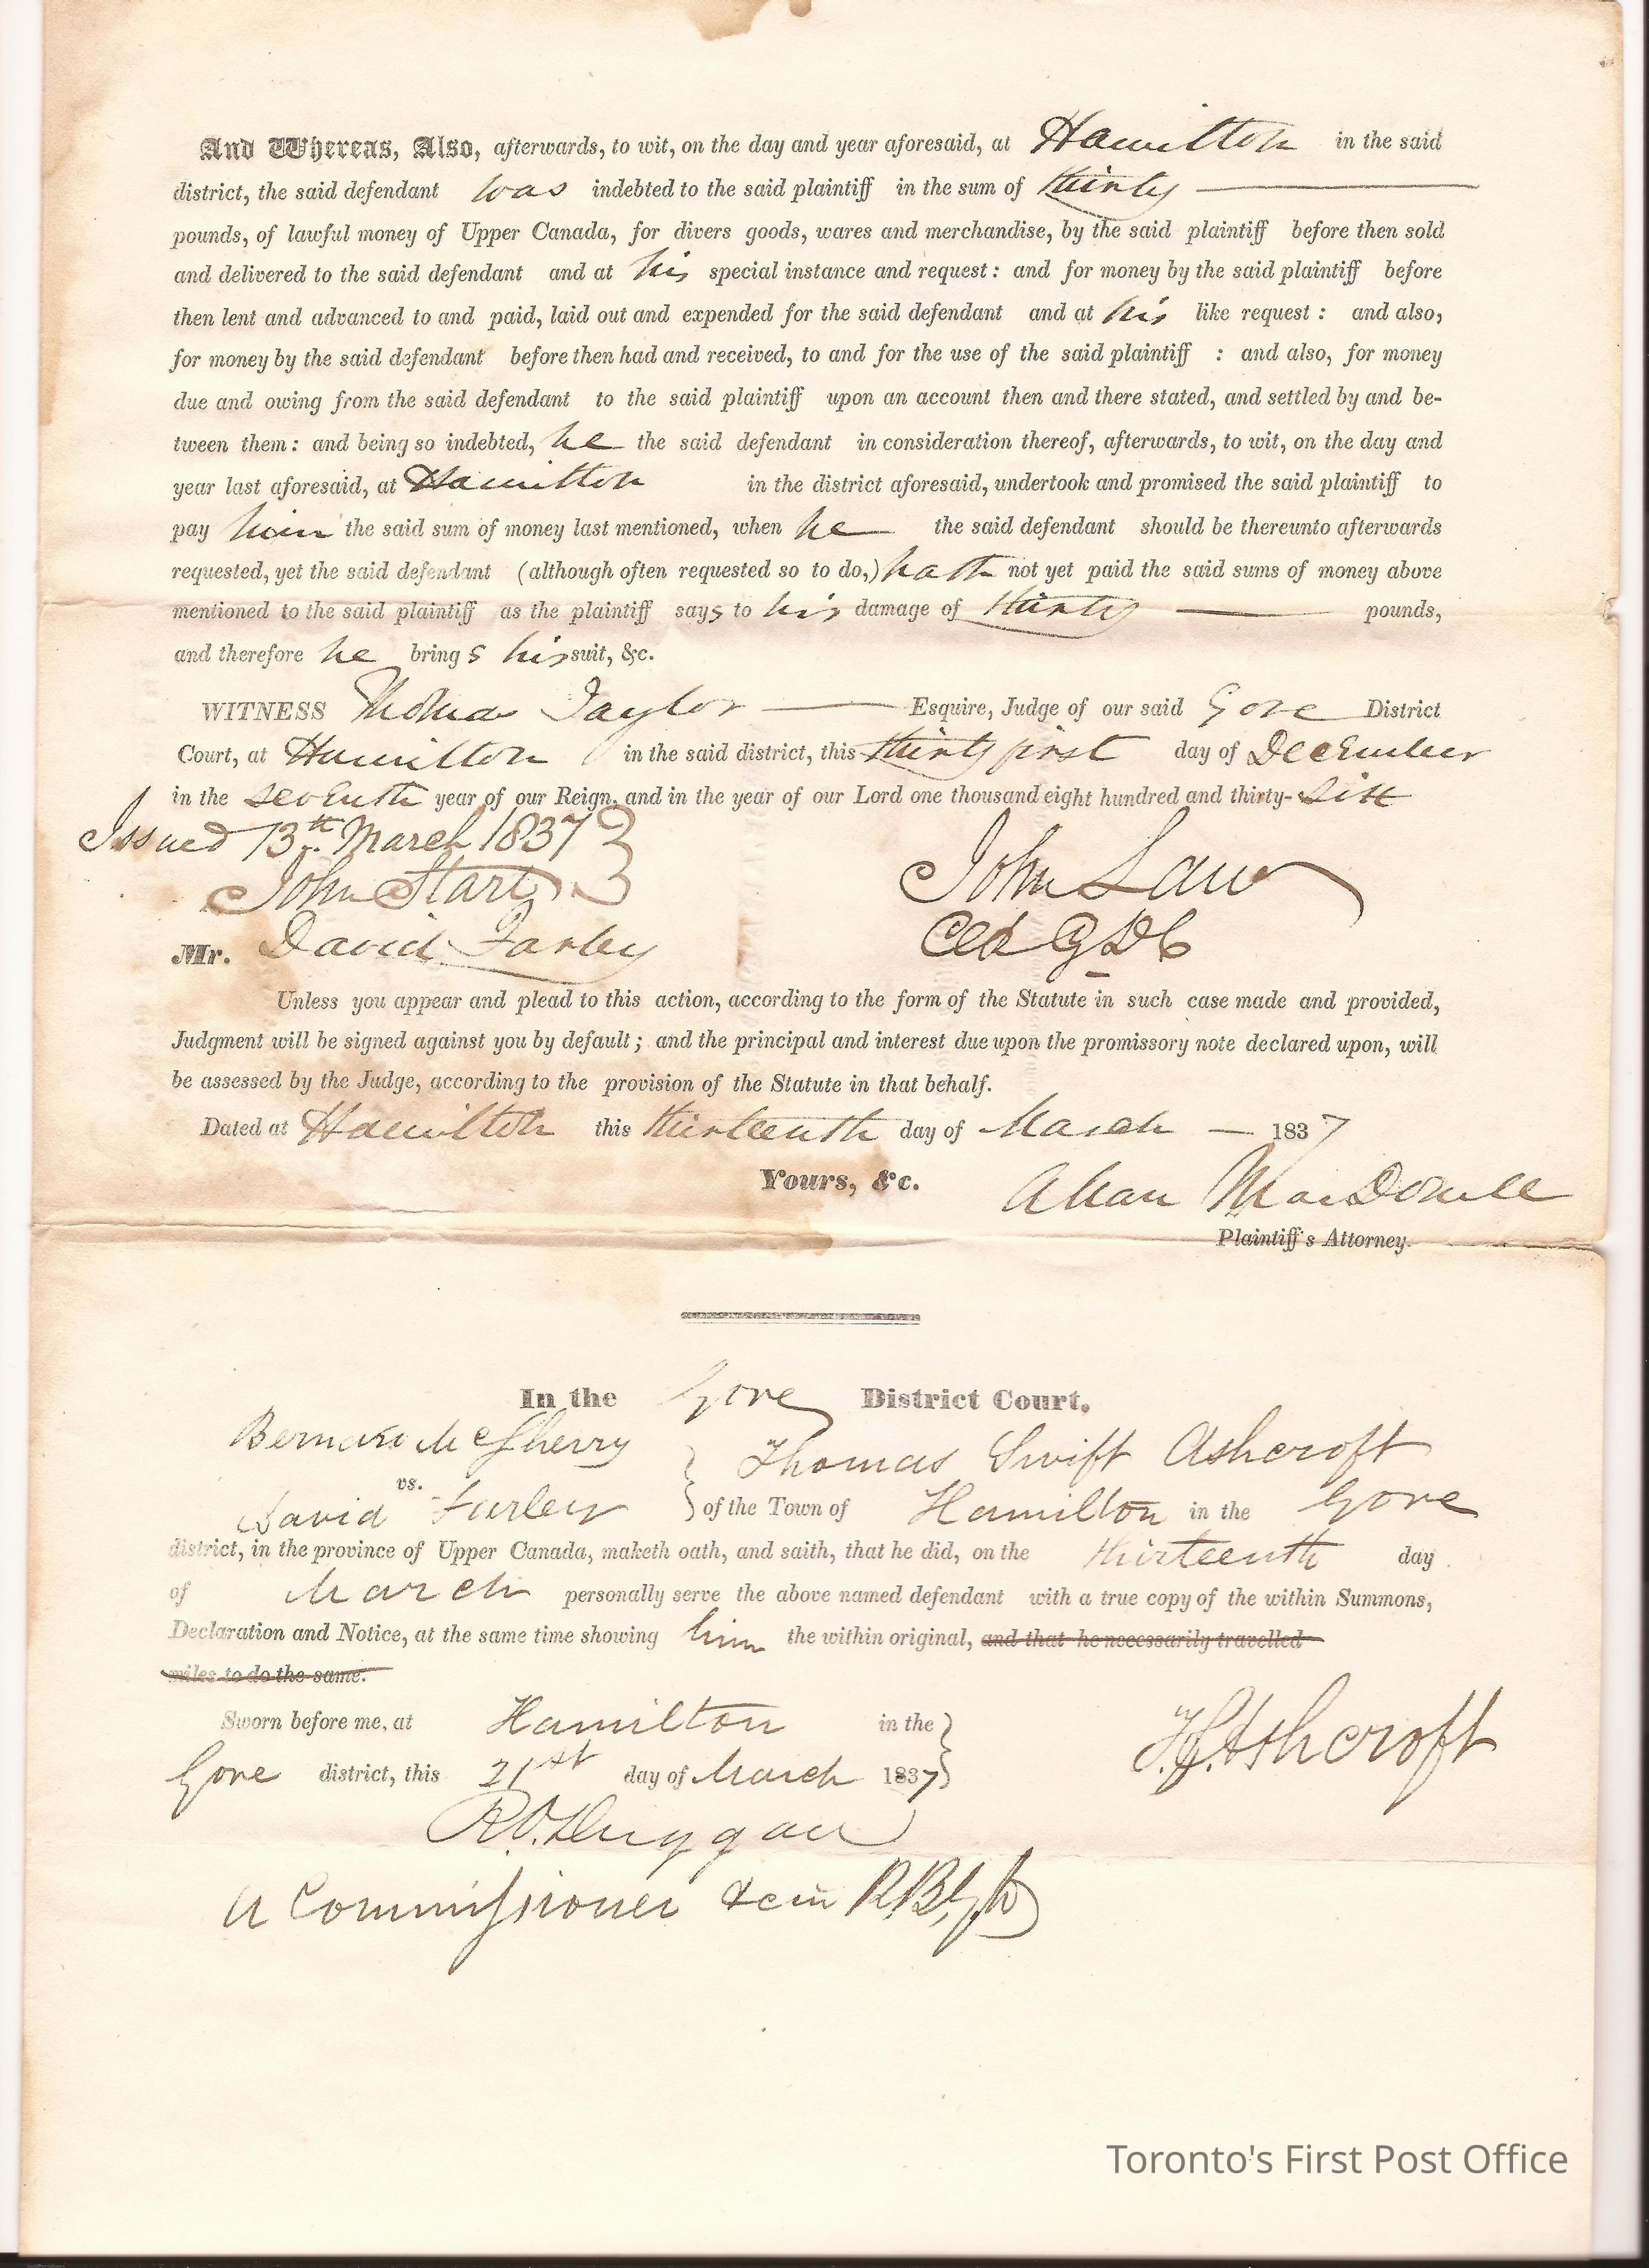 And Whereas, Also, afterwards, to wit, on the day and year aforesaid, at Hamilton in the said
district, the said defendant was indebted to the said plaintiff in the sum of thirty
pounds, of lawful money of Upper Canada, for divers goods, wares and merchandise, by the said plaintiff before then sold
and delivered to the said defendant and at his special instance and request: and for money by the said plaintiff before
then lent and advanced to and paid, laid out and expended for the said defendant and at his like request: and also,
for money by the said defendant before then had and received, to and for the use of the said plaintiff : and also, for money
due and owing from the said defendant to the said plaintiff upon an account then and there stated, and settled by and be-
tween them: and being so indebted, he the said defendant in consideration thereof, afterwards, to wit, on the day and
year last aforesaid, at Hamilton in the district aforesaid, undertook and promised the said plaintiff to
pay him the said sum of money last mentioned, when he the said defendant should be thereunto afterwards
requested, yet the said defendant (although often requested so to do,) hath not yet paid the said sums of money above
mentioned to the said plaintiff as the plaintiff says to his damage of thirty pounds,
and therefore he brings his suit, &c.
WITNESS Thomas Taylor Esquire, Judge of our said Gore District
Court, at Hamilton in the said district, this thirty first day of December
in the seventh year of our Reign, and in the year of our Lord one thousand eight hundred and thirty-six
Issued 13th March 1837
John Start John Law
Clk G D C
Mr. David Farley
Unless you appear and plead to this action, according to the form of the Statute in such case made and provided,
Judgment will be signed against you by default; and the principal and interest due upon the promissory note declared upon, will
be assessed by the Judge, according to the provision of the Statute in that behalf.
Dated at Hamilton this thirteenth day of March 1837
Yours, &c. Allan MacDonell
Plaintiff's Attorney.
In the Gore District Court.
Bernard McSherry
vs.
David Farley
Thomas Swift Ashcroft
of the Town of Hamilton in the Gore
district, in the province of Upper Canada, maketh oath, and saith, that he did, on the thirteenth day
of March personally serve the above named defendant with a true copy of the within Summons,
Declaration and Notice, at the same time showing him the within original, and that he necessarily travelled
miles to do the same.
Sworn before me, at Hamilton in the
Gore district, this 21st day of March 1837
T.S. Ashcroft
R.O. Duggan
A Commissioner &c in
Toronto's First Post Office